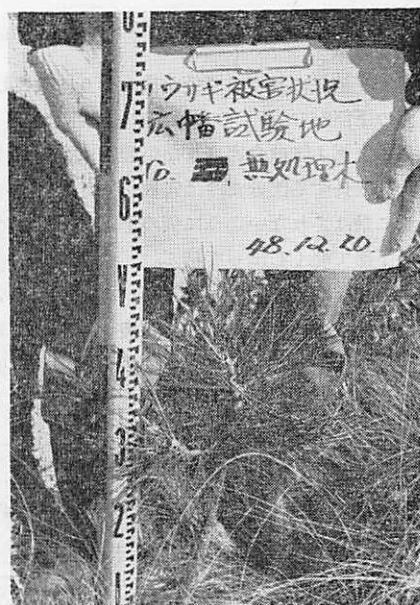 ウサギ被害状況
広幡試験地
No. 無処理木
48.12.20.
8
7
6
V
4
3
2
1